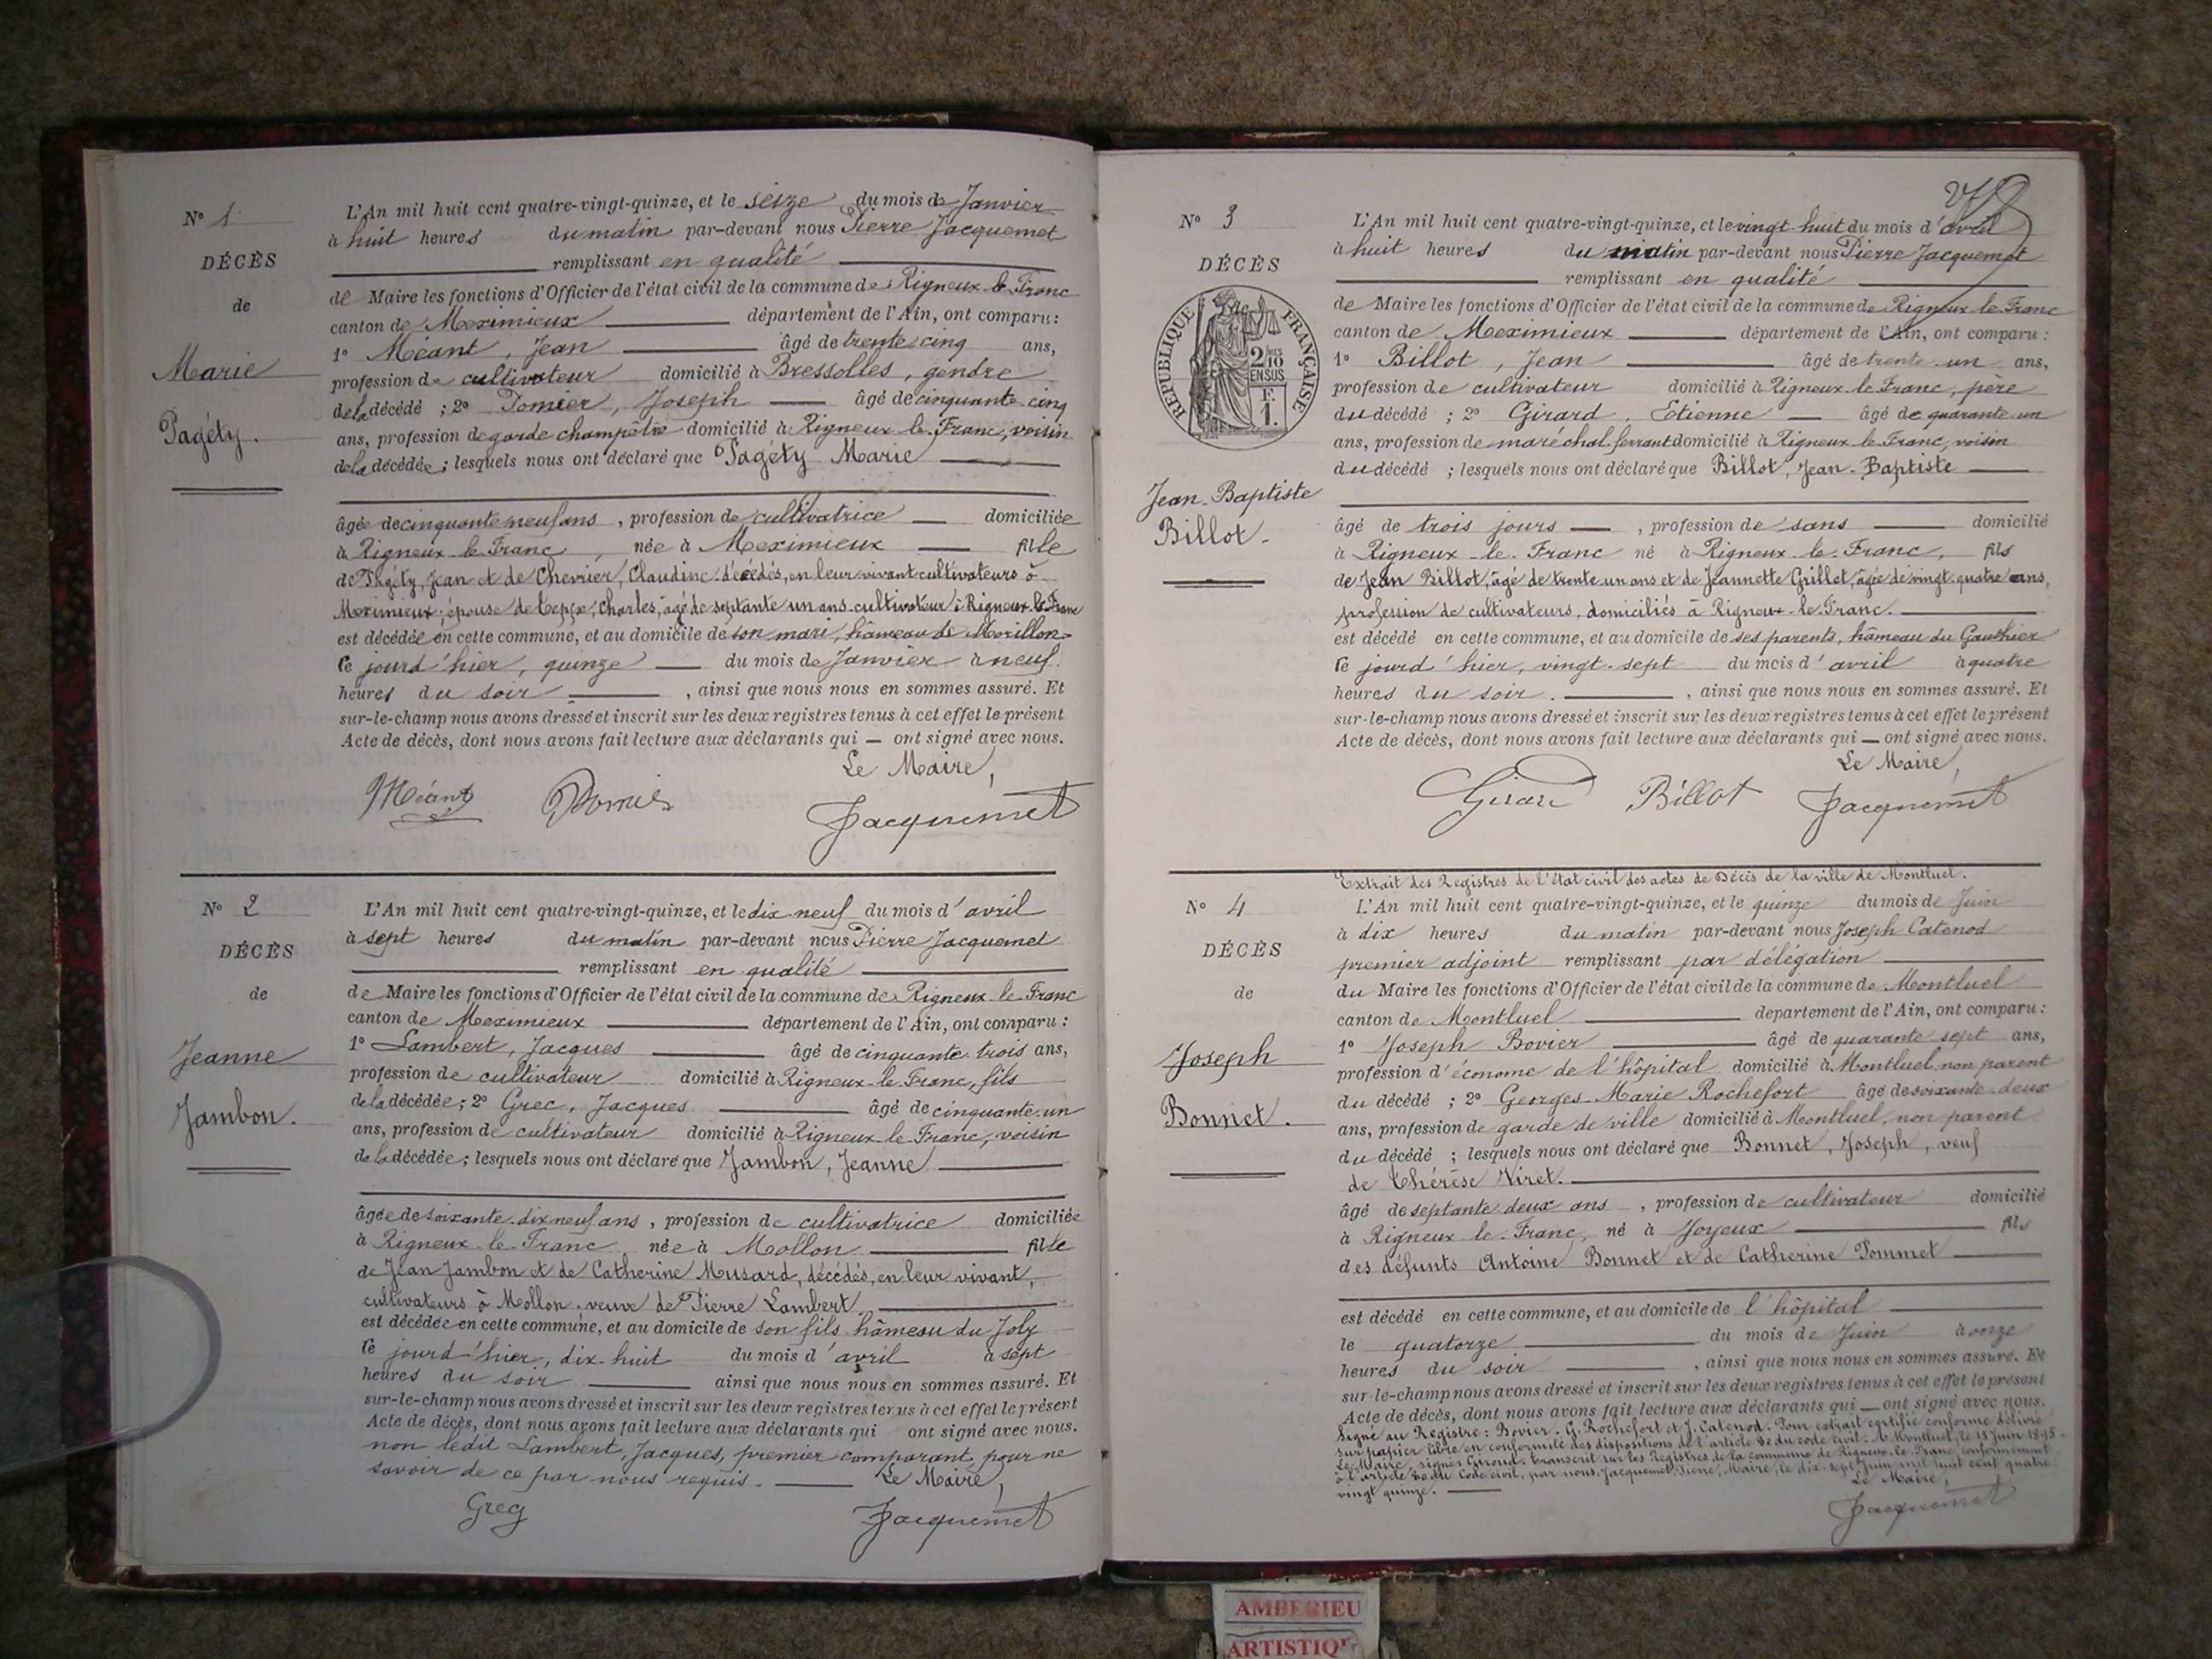 N° 1
DÉCÈS
de
Marie
Pagéty.
L'An mil huit cent quatre-vingt-quinze, et le seize du mois de Janvier
à huit heures du matin par-devant nous Pierre Jacquemet
remplissant en qualité
de Maire les fonctions d'Officier de l'état civil de la commune de Rigneux-le-Franc
canton de Meximieux département de l'Ain, ont comparu :
1° Méant, Jean âgé de trente-cinq ans,
profession de cultivateur domicilié à Bressolles, gendre
de la décédé ; 2° Pomier, Joseph âgé de cinquante-cinq
ans, profession de garde champêtre domicilié à Rigneux-le-Franc, voisin
de la décédée ; lesquels nous ont déclaré que Pagéty Marie
âgée de cinquante neuf ans, profession de cultivatrice domiciliée
à Rigneux-le-Franc, née à Meximieux fille
de Pagéty, Jean et de Chevrier, Claudine décédés, en leur vivant cultivateurs à
Meximieux ; épouse de Charles, âgé de septante un ans cultivateur à Rigneux-le-Franc
est décédée en cette commune, et au domicile de son mari, hâmeau de Morillon
le jourd'hier, quinze du mois de Janvier à neuf
heures du soir, ainsi que nous nous en sommes assuré. Et
sur-le-champ nous avons dressé et inscrit sur les deux registres tenus à cet effet le présent
Acte de décès, dont nous avons fait lecture aux déclarants qui — ont signé avec nous.
Le Maire,
Méant Pomier Jacquemet
N° 2
DÉCÈS
de
Jeanne
Jambon.
L'An mil huit cent quatre-vingt-quinze, et le dix-neuf du mois d'avril
à sept heures du matin par-devant nous Pierre Jacquemet
remplissant en qualité
de Maire les fonctions d'Officier de l'état civil de la commune de Rigneux-le-Franc
canton de Meximieux département de l'Ain, ont comparu :
1° Lambert, Jacques âgé de cinquante-trois ans,
profession de cultivateur domicilié à Rigneux-le-Franc, fils
de la décédée ; 2° Grec, Jacques âgé de cinquante-un
ans, profession de cultivateur domicilié à Rigneux-le-Franc, voisin
de la décédée ; lesquels nous ont déclaré que Jambon, Jeanne
âgée de soixante-dix neuf ans, profession de cultivatrice domiciliée
à Rigneux-le-Franc née à Mollon fille
de Jean Jambon et de Catherine Musard, décédés, en leur vivant,
cultivateurs à Mollon, veuve de Pierre Lambert
est décédée en cette commune, et au domicile de son fils hâmeau du Joly
le jourd'hier, dix-huit du mois d'avril à sept
heures du soir ainsi que nous nous en sommes assuré. Et
sur-le-champ nous avons dressé et inscrit sur les deux registres tenus à cet effet le présent
Acte de décès, dont nous avons fait lecture aux déclarants qui ont signé avec nous.
non ledit Lambert, Jacques, premier comparant pour ne
savoir de ce par nous requis. Le Maire,
Greg Jacquemet
N° 3
DÉCÈS
de
RÉPUBLIQUE FRANÇAISE
2/10 EN SUS
F. 1.
Jean-Baptiste
Billot.
L'An mil huit cent quatre-vingt-quinze, et le vingt-huit du mois d'avril
à huit heures du matin par-devant nous Pierre Jacquemet
remplissant en qualité
de Maire les fonctions d'Officier de l'état civil de la commune de Rigneux-le-Franc
canton de Meximieux département de l'Ain, ont comparu :
1° Billot, Jean âgé de trente-un ans,
profession de cultivateur domicilié à Rigneux-le-Franc, père
du décédé ; 2° Girard, Etienne âgé de quarante-un
ans, profession de maréchal-ferrant domicilié à Rigneux-le-Franc, voisin
du décédé ; lesquels nous ont déclaré que Billot, Jean-Baptiste
âgé de trois jours, profession de sans domicilié
à Rigneux-le-Franc né à Rigneux-le-Franc, fils
de Jean Billot, âgé de trente-un ans et de Jeannette Grillet, âgée de vingt-quatre ans,
profession de cultivateurs, domiciliés à Rigneux-le-Franc.
est décédé en cette commune, et au domicile de ses parents, hâmeau du Gauthier
le jourd'hier, vingt-sept du mois d'avril à quatre
heures du soir., ainsi que nous nous en sommes assuré. Et
sur-le-champ nous avons dressé et inscrit sur les deux registres tenus à cet effet le présent
Acte de décès, dont nous avons fait lecture aux déclarants qui — ont signé avec nous.
Le Maire,
Girard Billot Jacquemet
N° 4
DÉCÈS
de
Joseph
Bonnet.
Extrait des Registres de l'état civil des actes de Décès de la ville de Montluel.
L'An mil huit cent quatre-vingt-quinze, et le quinze du mois de Juin
à dix heures du matin par-devant nous Joseph Catenod
premier adjoint remplissant par délégation
du Maire les fonctions d'Officier de l'état civil de la commune de Montluel
canton de Montluel département de l'Ain, ont comparu :
1° Joseph Bovier âgé de quarante-sept ans,
profession d'économe de l'hôpital domicilié à Montluel, non parent
du décédé ; 2° Georges-Marie Rochefort âgé de soixante-deux
ans, profession de garde de ville domicilié à Montluel, non parent
du décédé ; lesquels nous ont déclaré que Bonnet, Joseph, veuf
de Thérèse Viret.
âgé de septante deux ans, profession de cultivateur domicilié
à Rigneux-le-Franc, né à Joyeux fils
des défunts Antoine Bonnet et de Catherine Pommet
est décédé en cette commune, et au domicile de l'hôpital
le quatorze du mois de Juin à onze
heures du soir, ainsi que nous nous en sommes assuré. Et
sur-le-champ nous avons dressé et inscrit sur les deux registres tenus à cet effet le présent
Acte de décès, dont nous avons fait lecture aux déclarants qui — ont signé avec nous.
Signé au Registre : Bovier. G. Rochefort et J. Catenod. Pour extrait certifié conforme délivré
sur papier libre en conformité des dispositions de l'article 80 du code civil. A Montluel, le 15 Juin 1895.
Le Maire, signé Giroud. Transcrit sur les Registres de la commune de Rigneux-le-Franc conformément
à l'article 80 du Code civil, par nous, Jacquemet, Pierre, Maire, le dix-sept Juin mil huit cent quatre
vingt quinze. Le Maire,
Jacquemet
AMBERIEU
ARTISTIQ